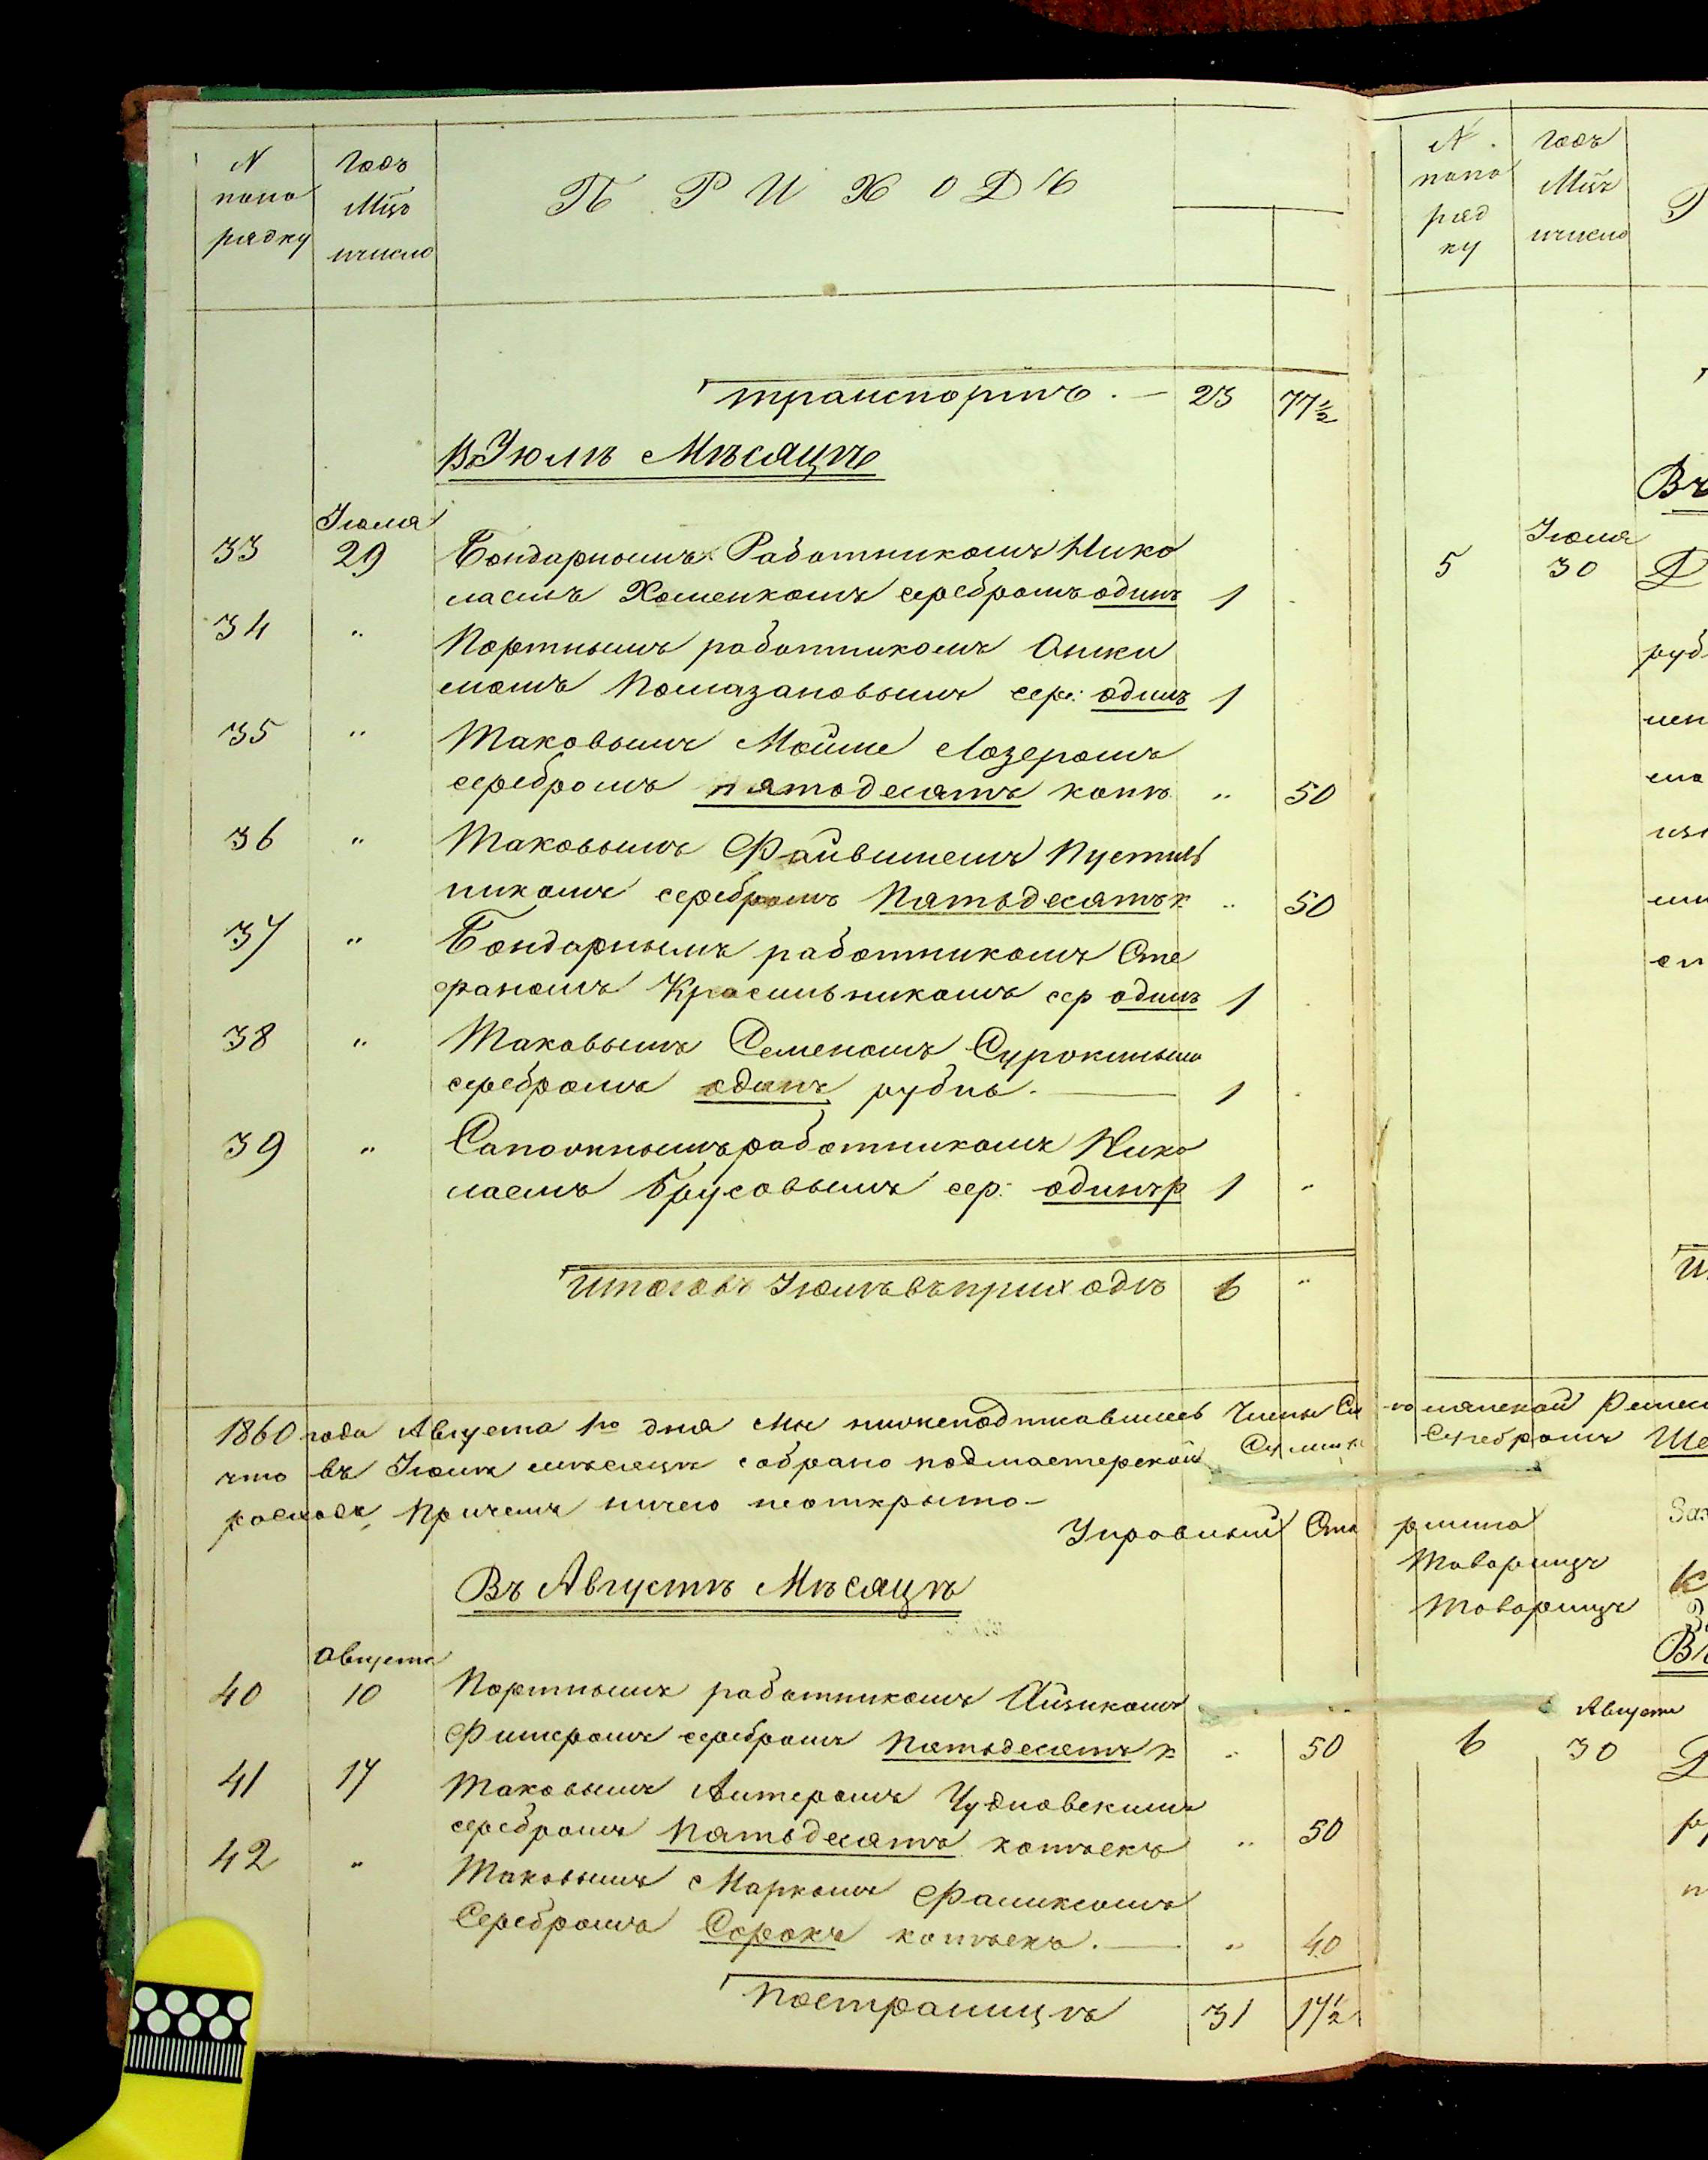 N Годъ ПРИХОДЪ
попо Мцъ
рядку ичисло
транспортъ. — 23 77½
Въ Іюлѣ Мѣсяцѣ
Іюля
33 29 Бондарнымъ Работникомъ Нико
лаемъ Хоменкомъ серебромъ одинъ 1
34 " Портнымъ работникомъ Аники
емомъ Помазановымъ сер: одинъ 1
35 " Таковымъ Мойше Лозеромъ
серебромъ пятьдесятъ копѣ " 50
36 " Таковымъ Файвишемъ Пустыль
никомъ серебромъ Пятьдесятъ к " 50
37 " Бондарнымъ работникомъ Сте
фаномъ Красильникомъ сер одинъ 1
38 " Таковымъ Семеномъ Сурокинымъ
серебромъ одинъ рубль. — 1
39 " Сапожнымъ работникомъ Нико
лаемъ Брусовымъ сер: одинъ р 1 "
Итого въ Іюлѣ въ приходѣ 6 "
1860 года Августа 1го дня Мы нижеподписавшіесь Члены
что въ Іюлѣ мѣсяцѣ собрано подмастерской Суммы
расходъ, Причемъ ничего неоткрыто —
Управный Ста
Въ Августѣ Мѣсяцѣ
Августа
40 10 Портнымъ работникомъ Айзикомъ
Фишеромъ серебромъ Пятьдесятъ к " 50
41 17 Таковымъ Антеромъ Чудновскимъ
серебромъ Пятьдесятъ копѣекъ " 50
42 " Таковымъ Маркомъ Фаликсомъ
Серебромъ Сорокъ копѣекъ. — " 40
Пострaницѣ 31 17½
N. Годъ
попо Мцъ
ряд ичисло
ку
Въ
Іюля
5 30 Д
руб
Серебромъ
ршина
Товарищъ
Товарищъ
Августа
6 30 Д